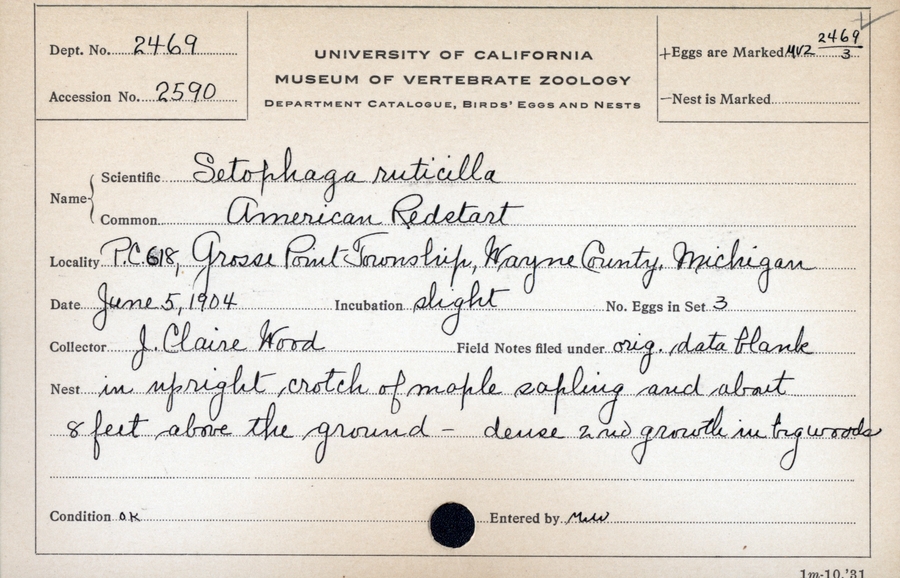 Dept. No. 2469
Accession No. 2590
UNIVERSITY OF CALIFORNIA
MUSEUM OF VERTEBRATE ZOOLOGY
DEPARTMENT CATALOGUE, BIRDS' EGGS AND NESTS
+Eggs are Marked MVZ 2469/3
—Nest is Marked
Name { Scientific Setophaga ruticilla
Common American Redstart
Locality P.C. 618, Grosse Point Township, Wayne County, Michigan
Date June 5, 1904 Incubation slight No. Eggs in Set 3
Collector J. Claire Wood Field Notes filed under orig. data blank
Nest in upright crotch of maple sapling and about
8 feet above the ground – dense 2nd growth in big woods
Condition OK Entered by
1m-10,'31